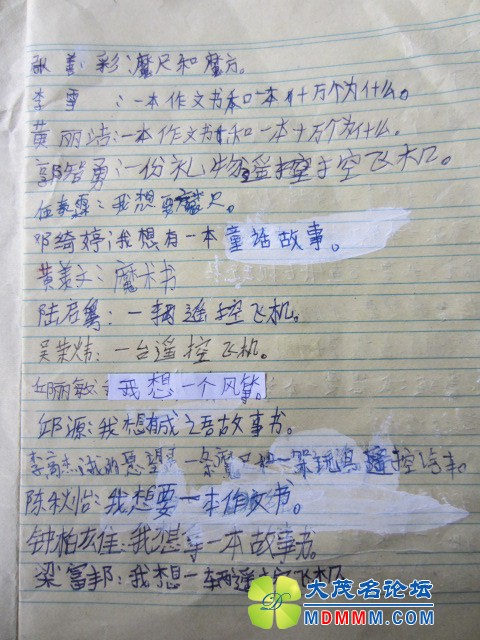 善彩:魔尺和魔方。
李雪:一本作文书和一本十万个为什么。
黄丽洁:一本作文书和一本十万个为什么。
郭智勇:一份礼物遥控手空飞机。
我想要魔尺。
邓绮婷:我想有一本童话故事。
黄美文:魔术书
陆君:一辆遥控飞机。
吴荣炜:一台遥控飞机。
邱丽敏:我想一个风筝。
邱源:我想有成之语故事书。
李高杰:我的愿望是一条魔尺和一架玩具遥控汽车。
陈秋怡:我想要一本作文书。
钟柏佳:我想拿一本故事书。
梁富邦:我想一辆遥控飞机
大茂名论坛
MDMMM.COM